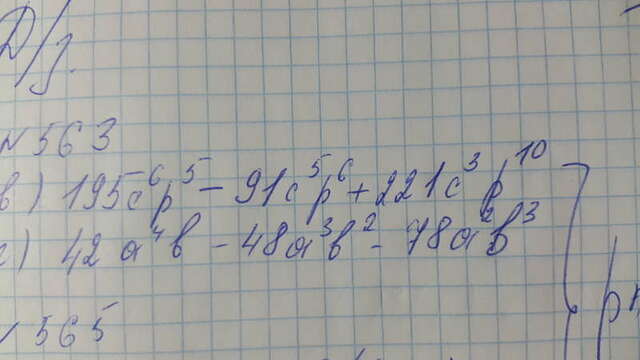 Д/з.
№ 563
в) 195c⁶p⁵ - 91c⁵p⁶ + 221c³p¹⁰
г) 42a⁴b - 48a³b² - 78a²b³
№ 565